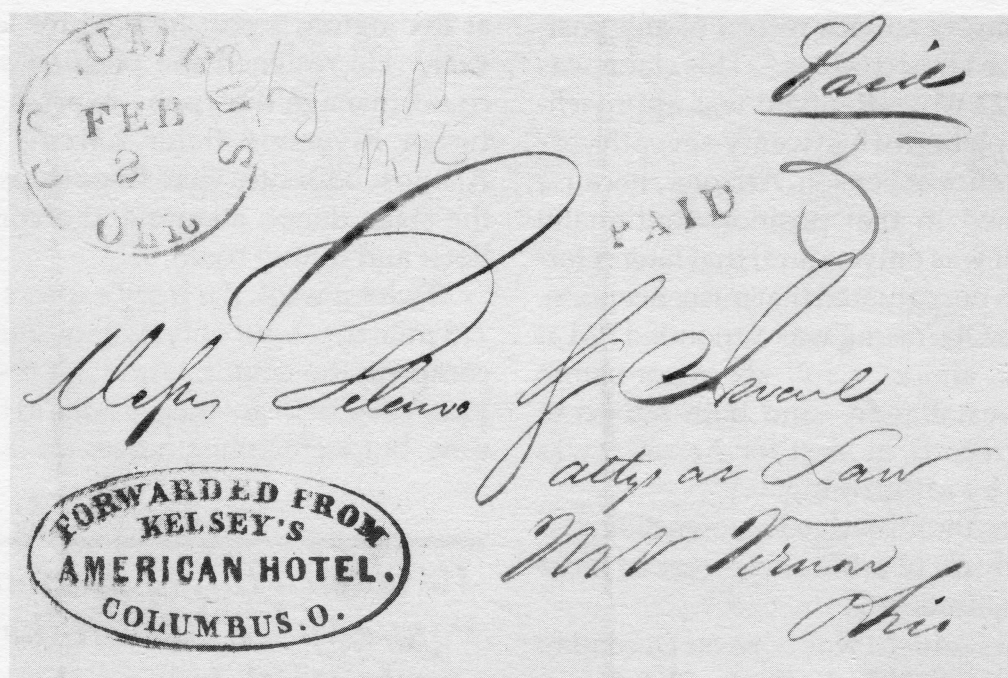 COLUMBUS
FEB
2
OHIO
Paid
PAID
3
Messrs Delano &
attys at Law
Mt Vernon
Ohio
FORWARDED FROM
KELSEY'S
AMERICAN HOTEL.
COLUMBUS.O.